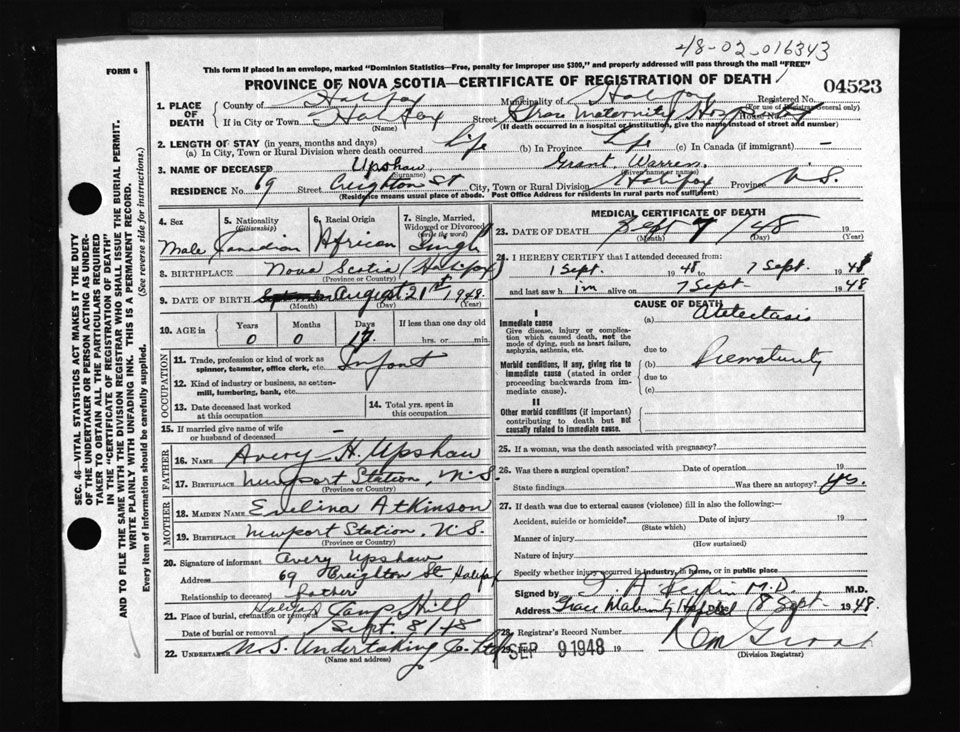 48-02-016343
FORM 6
This form if placed in an envelope, marked "Dominion Statistics—Free, penalty for improper use $300," and properly addressed will pass through the mail "FREE"
PROVINCE OF NOVA SCOTIA—CERTIFICATE OF REGISTRATION OF DEATH
04523
1. PLACE OF DEATH
County of Halifax Municipality of Halifax Registered No.
(For use of Registrar General only)
If in City or Town Halifax Street Grace Maternity Hospital House No.
(Name) (If death occurred in a hospital or institution, give the name instead of street and number)
2. LENGTH OF STAY (in years, months and days)
(a) In City, Town or Rural Division where death occurred Life (b) In Province Life (c) In Canada (if immigrant) —
3. NAME OF DECEASED Upshaw, Grant Warren.
(Surname) (Given name or names)
RESIDENCE No. 69 Street Creighton St City, Town or Rural Division Halifax Province N.S.
(Residence means usual place of abode. Post Office Address for residents in rural parts not sufficient)
4. Sex
Male
5. Nationality (Citizenship)
Canadian
6. Racial Origin
African
7. Single, Married, Widowed or Divorced (write the word)
Single
8. BIRTHPLACE Nova Scotia (Halifax)
(Province or Country)
9. DATE OF BIRTH September August 21st 1948.
(Month) (Day) (Year)
10. AGE in Years Months Days If less than one day
0 0 17 hrs. or min.
OCCUPATION
11. Trade, profession or kind of work as spinner, teamster, office clerk, etc. Infant
12. Kind of industry or business, as cotton-mill, lumbering, bank, etc.
13. Date deceased last worked at this occupation
14. Total yrs. spent in this occupation
15. If married give name of wife or husband of deceased —
FATHER
16. NAME Avery H. Upshaw
17. BIRTHPLACE Newport Station, N.S.
(Province or Country)
MOTHER
18. MAIDEN NAME Evelina Atkinson
19. BIRTHPLACE Newport Station, N.S.
(Province or Country)
20. Signature of informant Avery Upshaw
Address 69 Creighton St Halifax
Relationship to deceased father
21. Place of burial, cremation or removal Halifax Camp Hill
Date of burial or removal Sept. 8/48
22. UNDERTAKER N.S. Undertaking Co. Ltd
(Name and address)
MEDICAL CERTIFICATE OF DEATH
23. DATE OF DEATH Sept 7/48
(Month) (Day) (Year)
24. I HEREBY CERTIFY that I attended deceased from:
1 Sept. 1948 to 7 Sept. 1948
and last saw h im alive on 7 Sept- 1948
CAUSE OF DEATH
I
Immediate cause
Give disease, injury or complication which caused death, not the mode of dying, such as heart failure, asphyxia, asthenia, etc.
(a) Atelectasis
due to
Morbid conditions, if any, giving rise to immediate cause (stated in order proceeding backwards from immediate cause).
(b) Prematurity
due to
(c)
II
Other morbid conditions (if important) contributing to death but not causally related to immediate cause.
25. If a woman, was the death associated with pregnancy?
26. Was there a surgical operation? Date of operation 19
State findings Was there an autopsy? yes.
27. If death was due to external causes (violence) fill in also the following:
Accident, suicide or homicide? Date of injury 19
(State which)
Manner of injury
(How sustained)
Nature of injury
Specify whether injury occurred in industry, in home, or in public place
Signed by M.D. M.D.
Address Grace Maternity Hospital 8 Sept- 1948.
28. Registrar's Record Number
29. SEP 9 1948 19
(Division Registrar)
SEC. 46—VITAL STATISTICS ACT MAKES IT THE DUTY OF THE UNDERTAKER OR PERSON ACTING AS UNDERTAKER TO OBTAIN ALL THE PARTICULARS REQUIRED IN THE "CERTIFICATE OF REGISTRATION OF DEATH" AND TO FILE THE SAME WITH THE DIVISION REGISTRAR WHO SHALL ISSUE THE BURIAL PERMIT.
WRITE PLAINLY WITH UNFADING INK. THIS IS A PERMANENT RECORD.
Every item of Information should be carefully supplied. (See reverse side for instructions.)